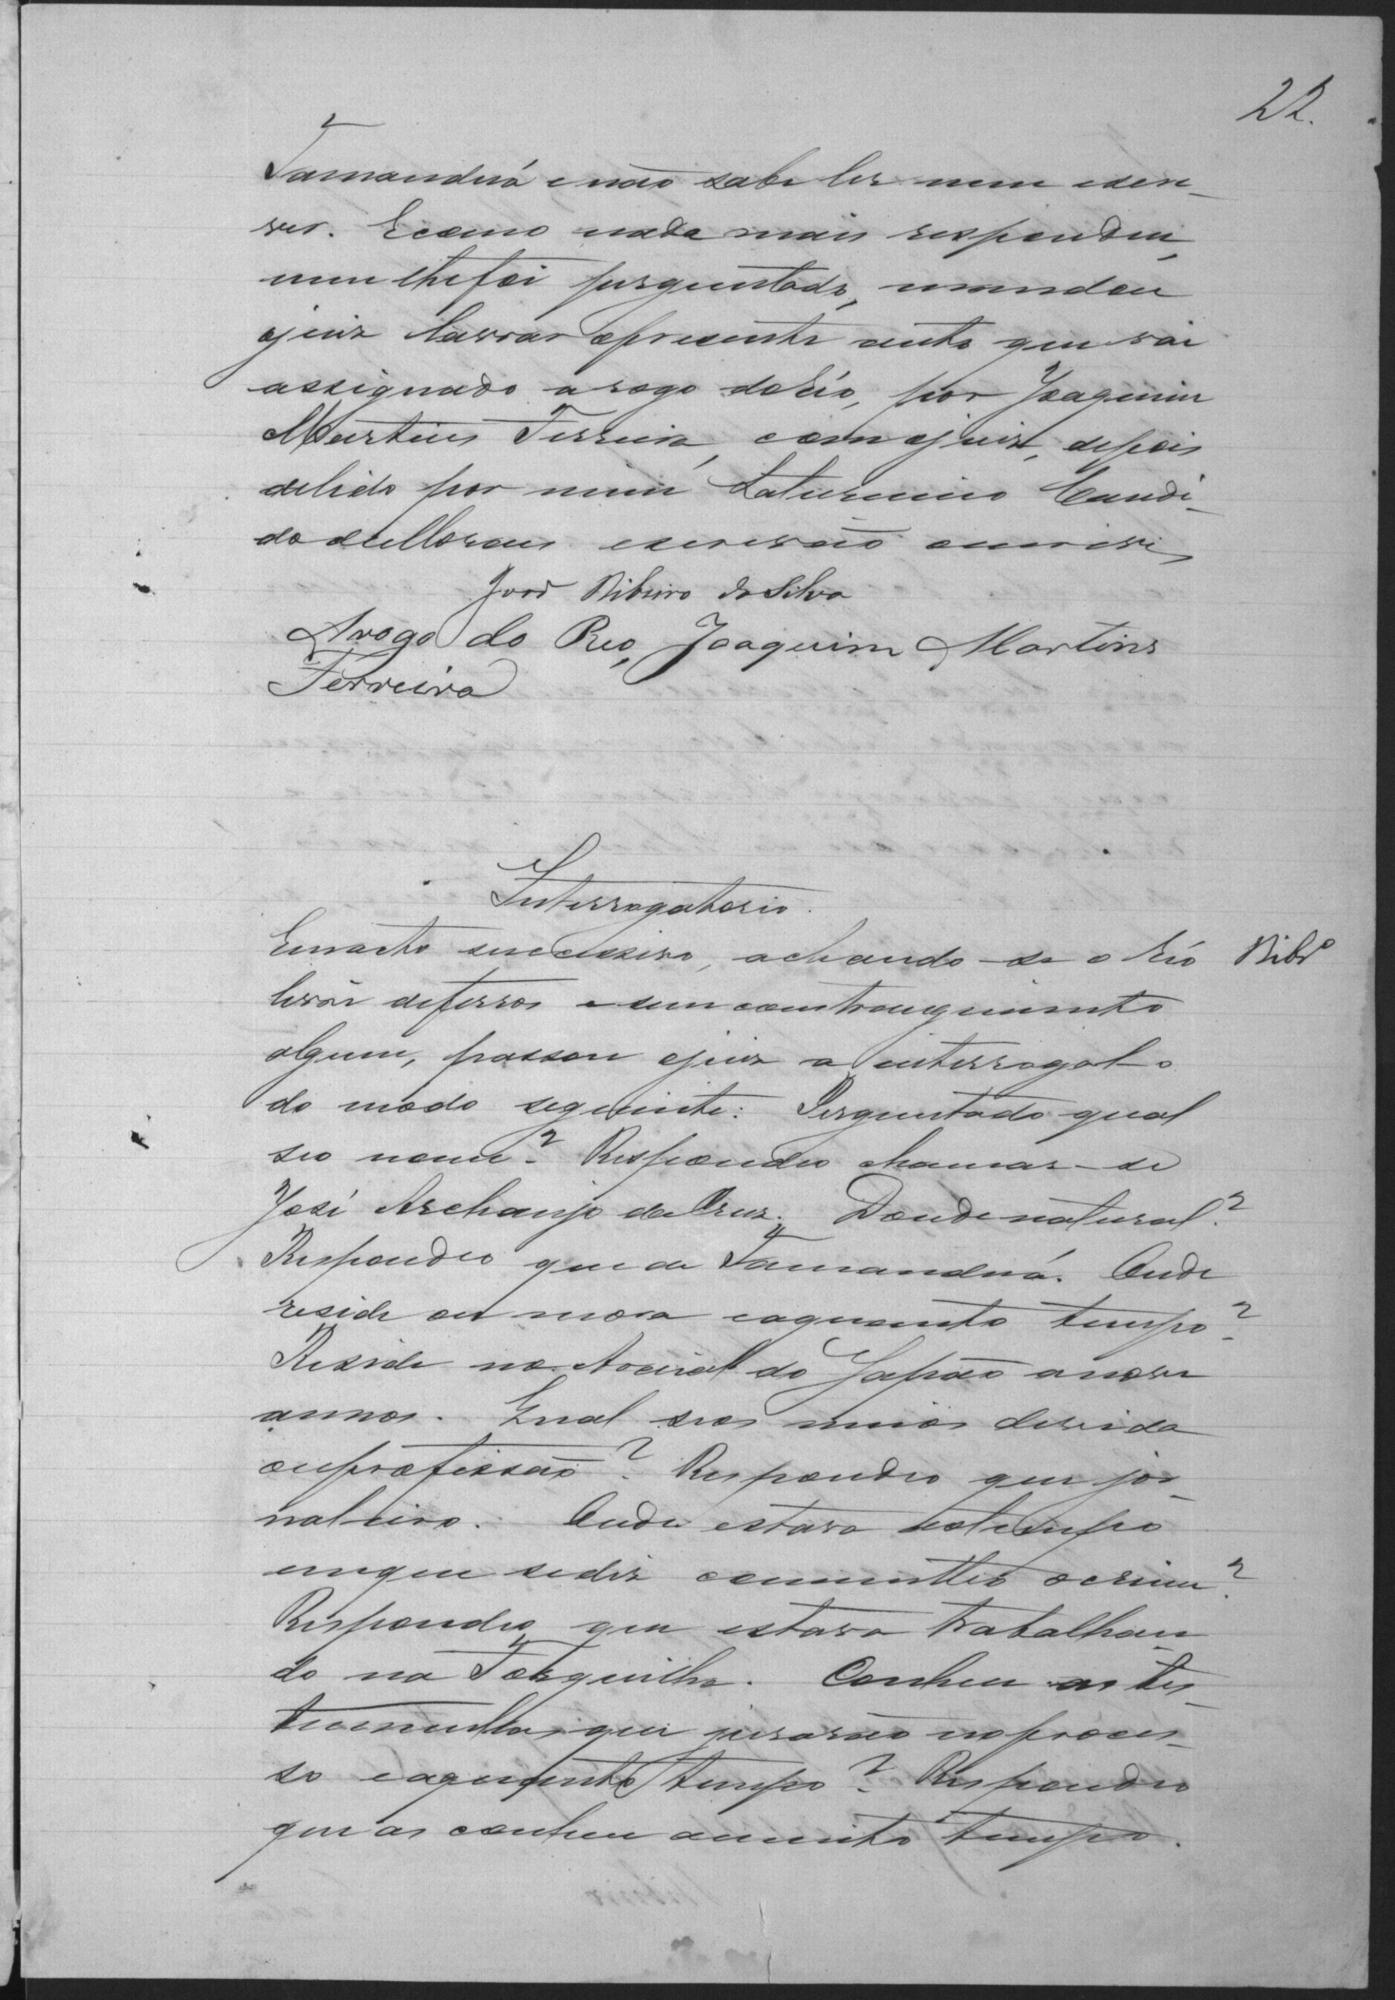 22.
Tamanduá e não sabe ler nem escre-
ver. E como nada mais respondeu,
nem lhe foi perguntado, mandou
o juiz lavrar o presente auto que vai
assignado a rogo do réo, por Joaquim
Martins Ferreira, com o juiz, depois
de lido por mim Saturnino Candi-
do de Moraes escrivão o escrevi
José Ribeiro da Silva
Arogo do Reo, Joaquim Martins
Ferreira
Interrogatorio.
Em acto successivo, achando-se o réo Ribrº
livre de ferros e sem constrangimento
algum, passou o juiz a interrogal-o
do modo seguinte: Perguntado qual
seo nome? Respondeo chamar-se
José Archanjo da Cruz. Donde natural?
Respondeo que de Tamanduá. Onde
reside ou mora e aquanto tempo?
Reside no Arraial do Japão a nove
annos. Qual seos meios de vida
ou profissão? Respondeo que jor-
naleiro. Onde estava no tempo
em que se diz commetteo o crime?
Respondeo que estava trabalhan-
do na Forquilha. Conhece as tes-
temunhas que jurarão no proces-
so e aquanto tempo? Respondeo
que as conhece a muito tempo.